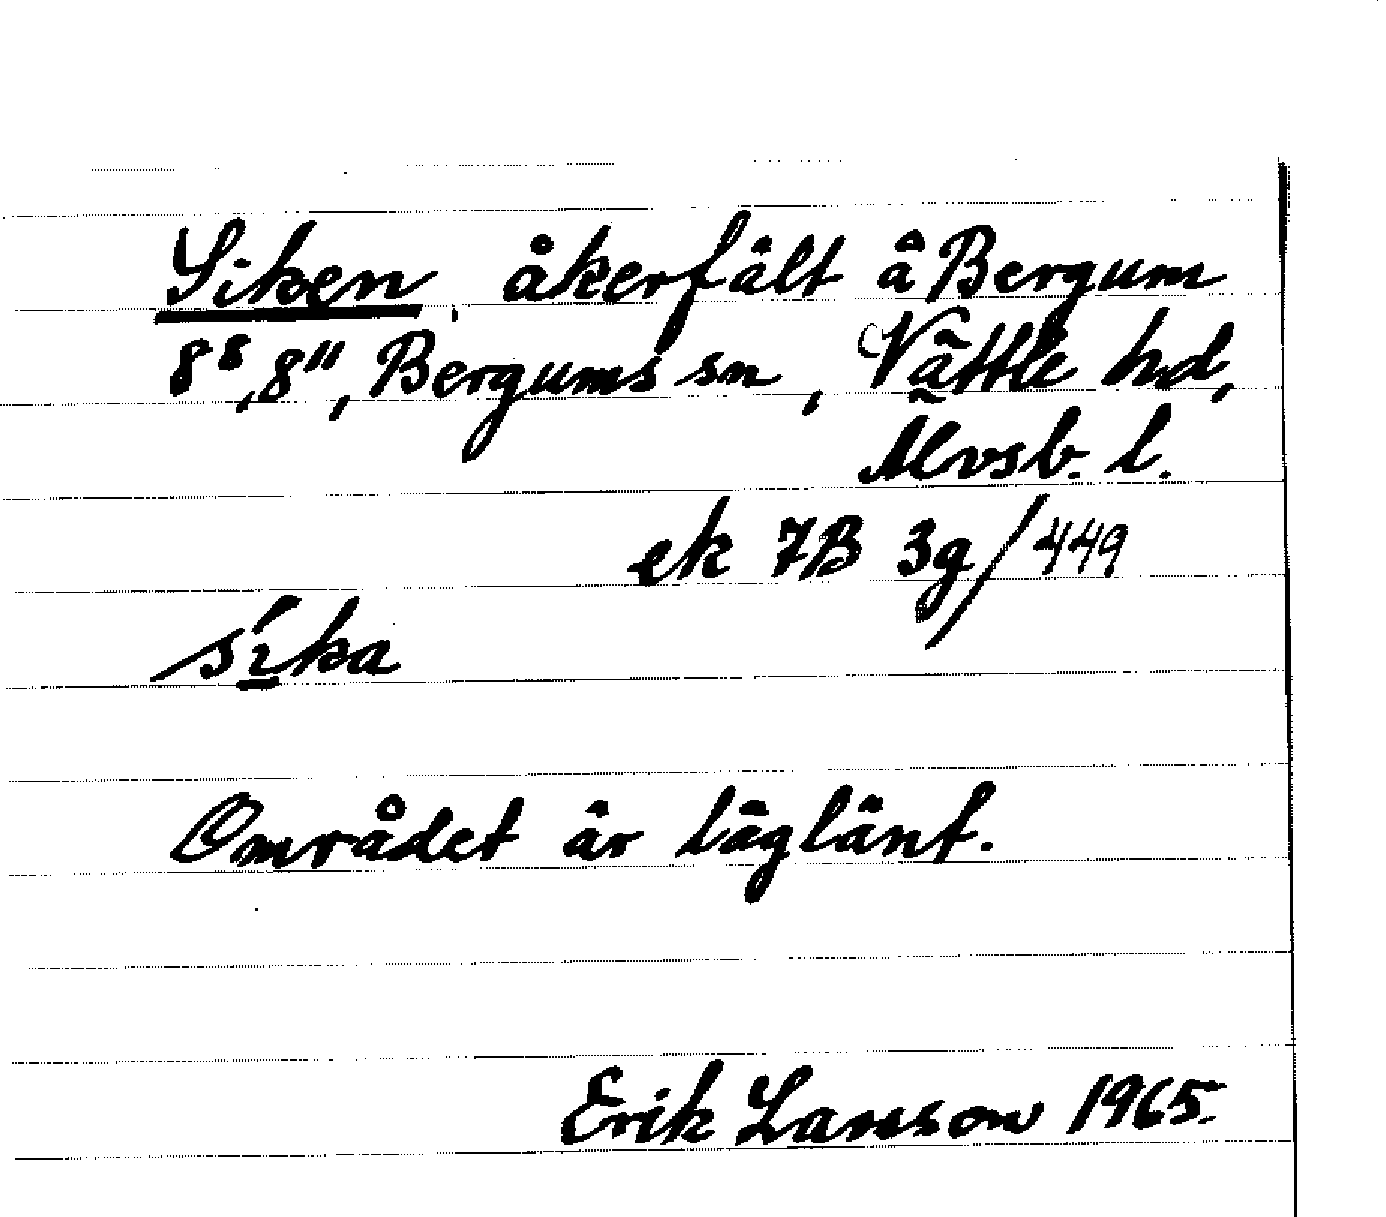 Siken, åkerfält å Bergum
8⁸, 8¹¹, Bergums sn, Vättle hd,
Älvsb. l.
ek 7B 3g/449
sí̱ka
Området är låglänt.
Erik Larsson 1965.